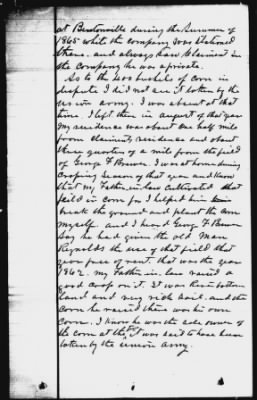 at Bentonville during the Summer of
1865 while the company was stationed
there. and always saw Claimant in
the Company he was a private.
As to the 400 bushels of corn in
dispute I did not see it taken by the
union army. I was absent at that
time. I left there in august of that year
my residence was about one half mile
from claimants residence and about
three quarters of a mile from the field
of George F Brown. I was at home during
croping season of that year and know
that my Father-in-law cultivated that
feild in corn for I helped him
break the ground and plant the corn
myself. and I heard George F Brown
say he had given the old Man
Reynolds the use of that field that
year free of rent. that was the year
1862. my Father-in-law raised a
good crop on it. It was River bottom
land and very rich soil. and the
corn he raised there was his own
corn. I know he was the sole owner of
the corn at the time it was said to have been
taken by the union army.